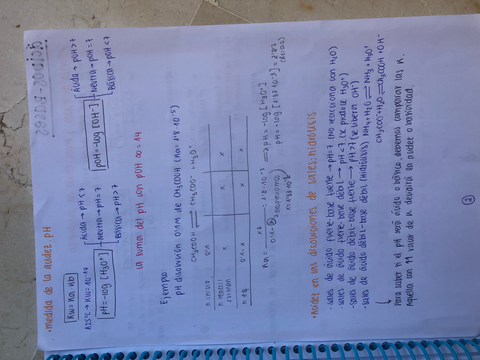 ácidos-bases
• medida de la acidez pH
Kw = Ka · Kb
A 25°C → Kw = 10⁻¹⁴
pH = -log [H₃O⁺]
Ácida → pH < 7
neutra → pH = 7
Básica → pH > 7
pOH = -log [OH⁻]
Ácida → pOH > 7
neutra → pOH = 7
Básica → pOH < 7
La suma del pH con pOH es = 14
Ejemplo:
pH disolución 0.1 M de CH₃COOH (Ka = 1'8·10⁻⁵)
CH₃COOH ⇌ CH₃COO⁻ + H₃O⁺
• Acidez en las disoluciones de sales: hidrólisis
- Sales de ácido fuerte-base fuerte → pH = 7 (no reacciona con H₂O)
- Sales de ácido fuerte-base débil → pH < 7 (se produce H₃O⁺)
- Sales de ácido débil-base fuerte → pH > 7 (se liberan OH⁻)
- Sales de ácido débil-base débil (hidrólisis) NH₄ + H₂O ⇌ NH₃ + H₃O⁺
CH₃COO⁻ + H₂O ⇌ CH₃COOH + OH⁻
Para saber si el pH será ácido o básico, debemos comparar las K.
Aquella con valor de K decidirá la acidez o basicidad.
2